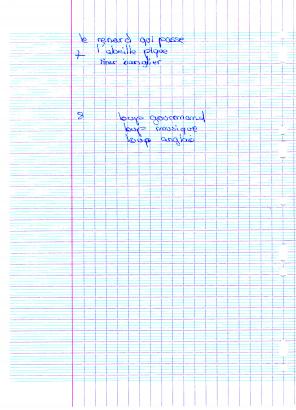 le renard qui passe
7 l'abeille pique
sanglier
8 loup gourmand
loup musique
loup anglais